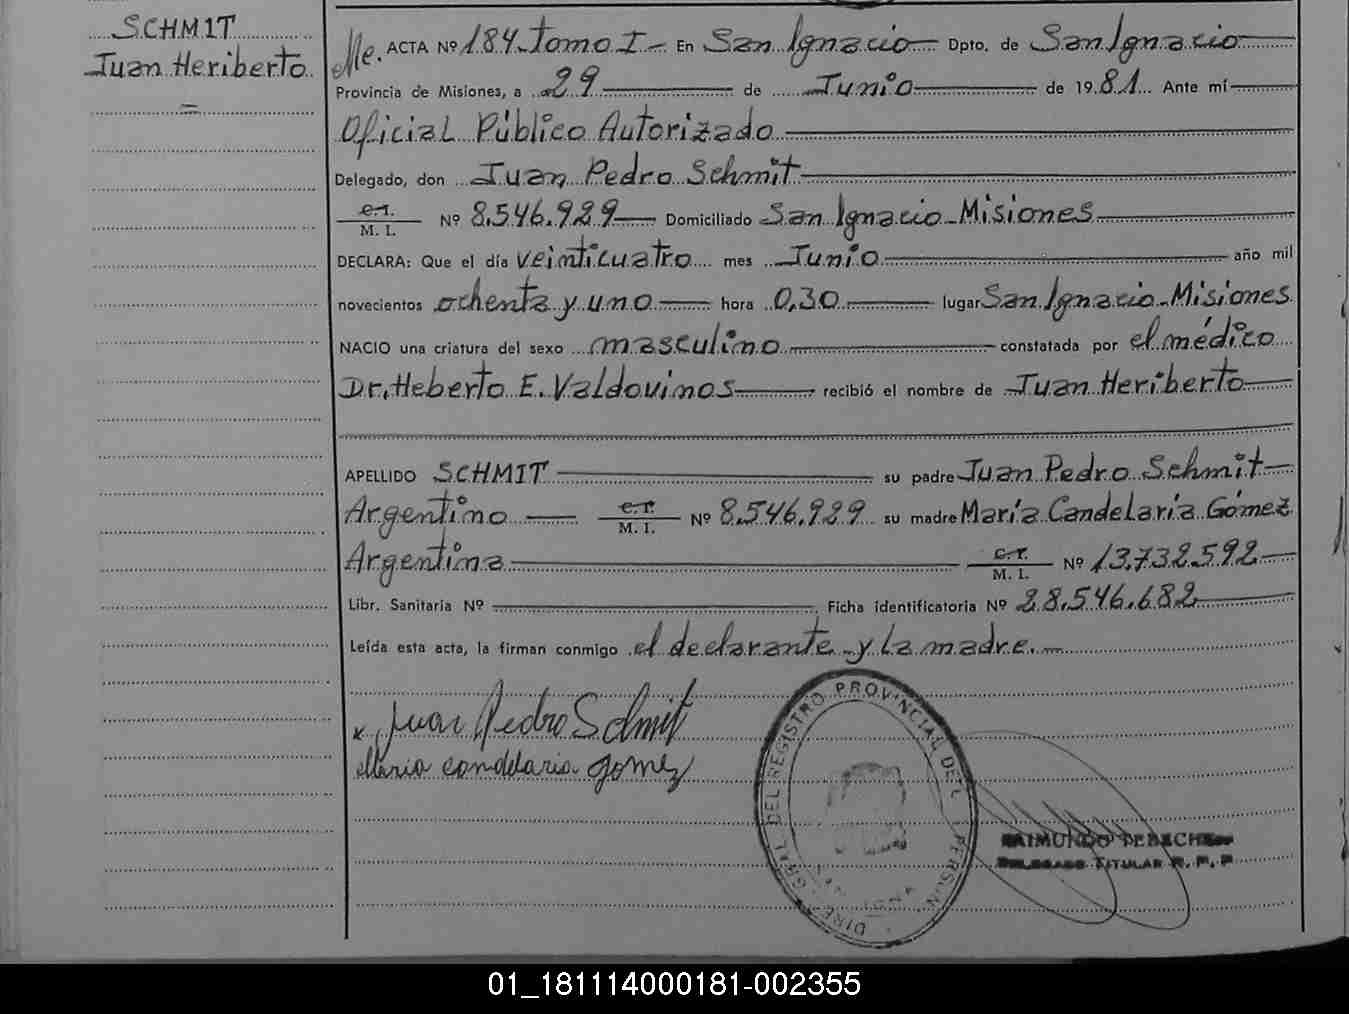 SCHMIT
Juan Heriberto
=
Me. ACTA Nº 184 - Tomo I - En San Ignacio Dpto. de San Ignacio
Provincia de Misiones, a 29 de Junio de 1981 Ante mí
Oficial Público Autorizado
Delegado, don Juan Pedro Schmit
C.I. / M. I. Nº 8.546.929 Domiciliado San Ignacio - Misiones
DECLARA: Que el día veinticuatro mes Junio año mil
novecientos ochenta y uno hora 0,30 lugar San Ignacio - Misiones
NACIO una criatura del sexo masculino constatada por el médico
Dr. Heberto E. Valdovinos recibió el nombre de Juan Heriberto
APELLIDO SCHMIT su padre Juan Pedro Schmit
Argentino C.I. / M. I. Nº 8.546.929 su madre María Candelaria Gómez
Argentina C.I. / M. I. Nº 13.732.592
Libr. Sanitaria Nº Ficha identificatoria Nº 28.546.682
Leída esta acta, la firman conmigo el declarante y la madre.
x Juan Pedro Schmit
Maria candelaria gomez
DIREC. GRAL. DEL REGISTRO PROVINCIAL DE
RAIMUNDO
DELEGADO TITULAR R. P. P
01_181114000181-002355